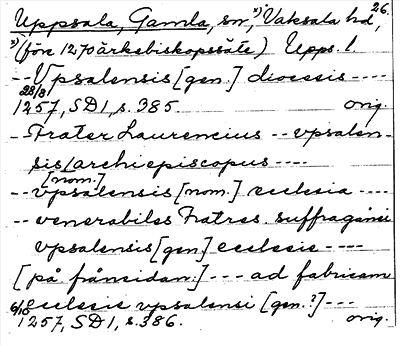 Uppsala, Gamla, sn, ˣ⁾ Vaksala hd, 26.
ˣ⁾ (före 1270 ärkebiskopssäte) Upps. l.
-- Vpsalensis [gen.] diocesis ----
28/8 1257, SD 1, s. 385 orig.
- Frater Laurencius -- vpsalen-
sis [nom.] archiepiscopus ----
-- vpsalensis [nom.] ecclesia ----
-- venerabiles Fratres. suffraganei
vpsalensis [gen] ecclesie ----
[på frånsidan:] --- ad fabricam
ecclesie vpsalensi [gen.?] ---
6/10 1257, SD 1, s. 386. orig.